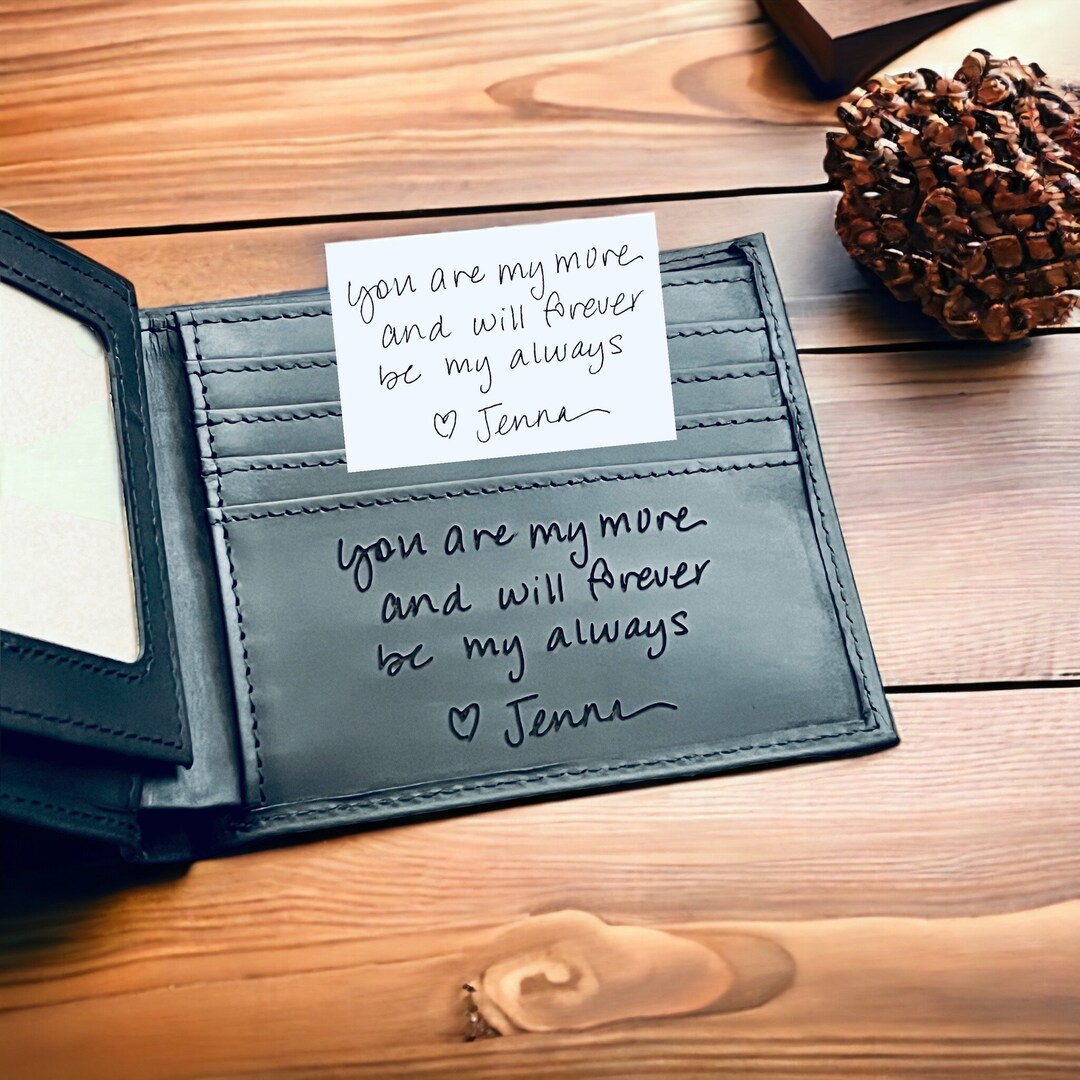 you are my more
and will forever
be my always
♡ Jenna
you are my more
and will forever
be my always
♡ Jenna